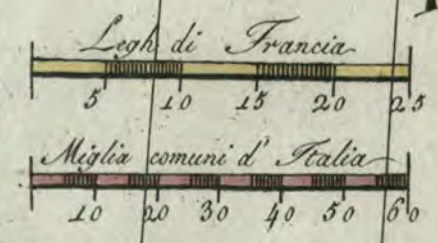 Leghe di Francia
5 10 15 20 25
Miglia comuni d' Italia
10 20 30 40 50 60